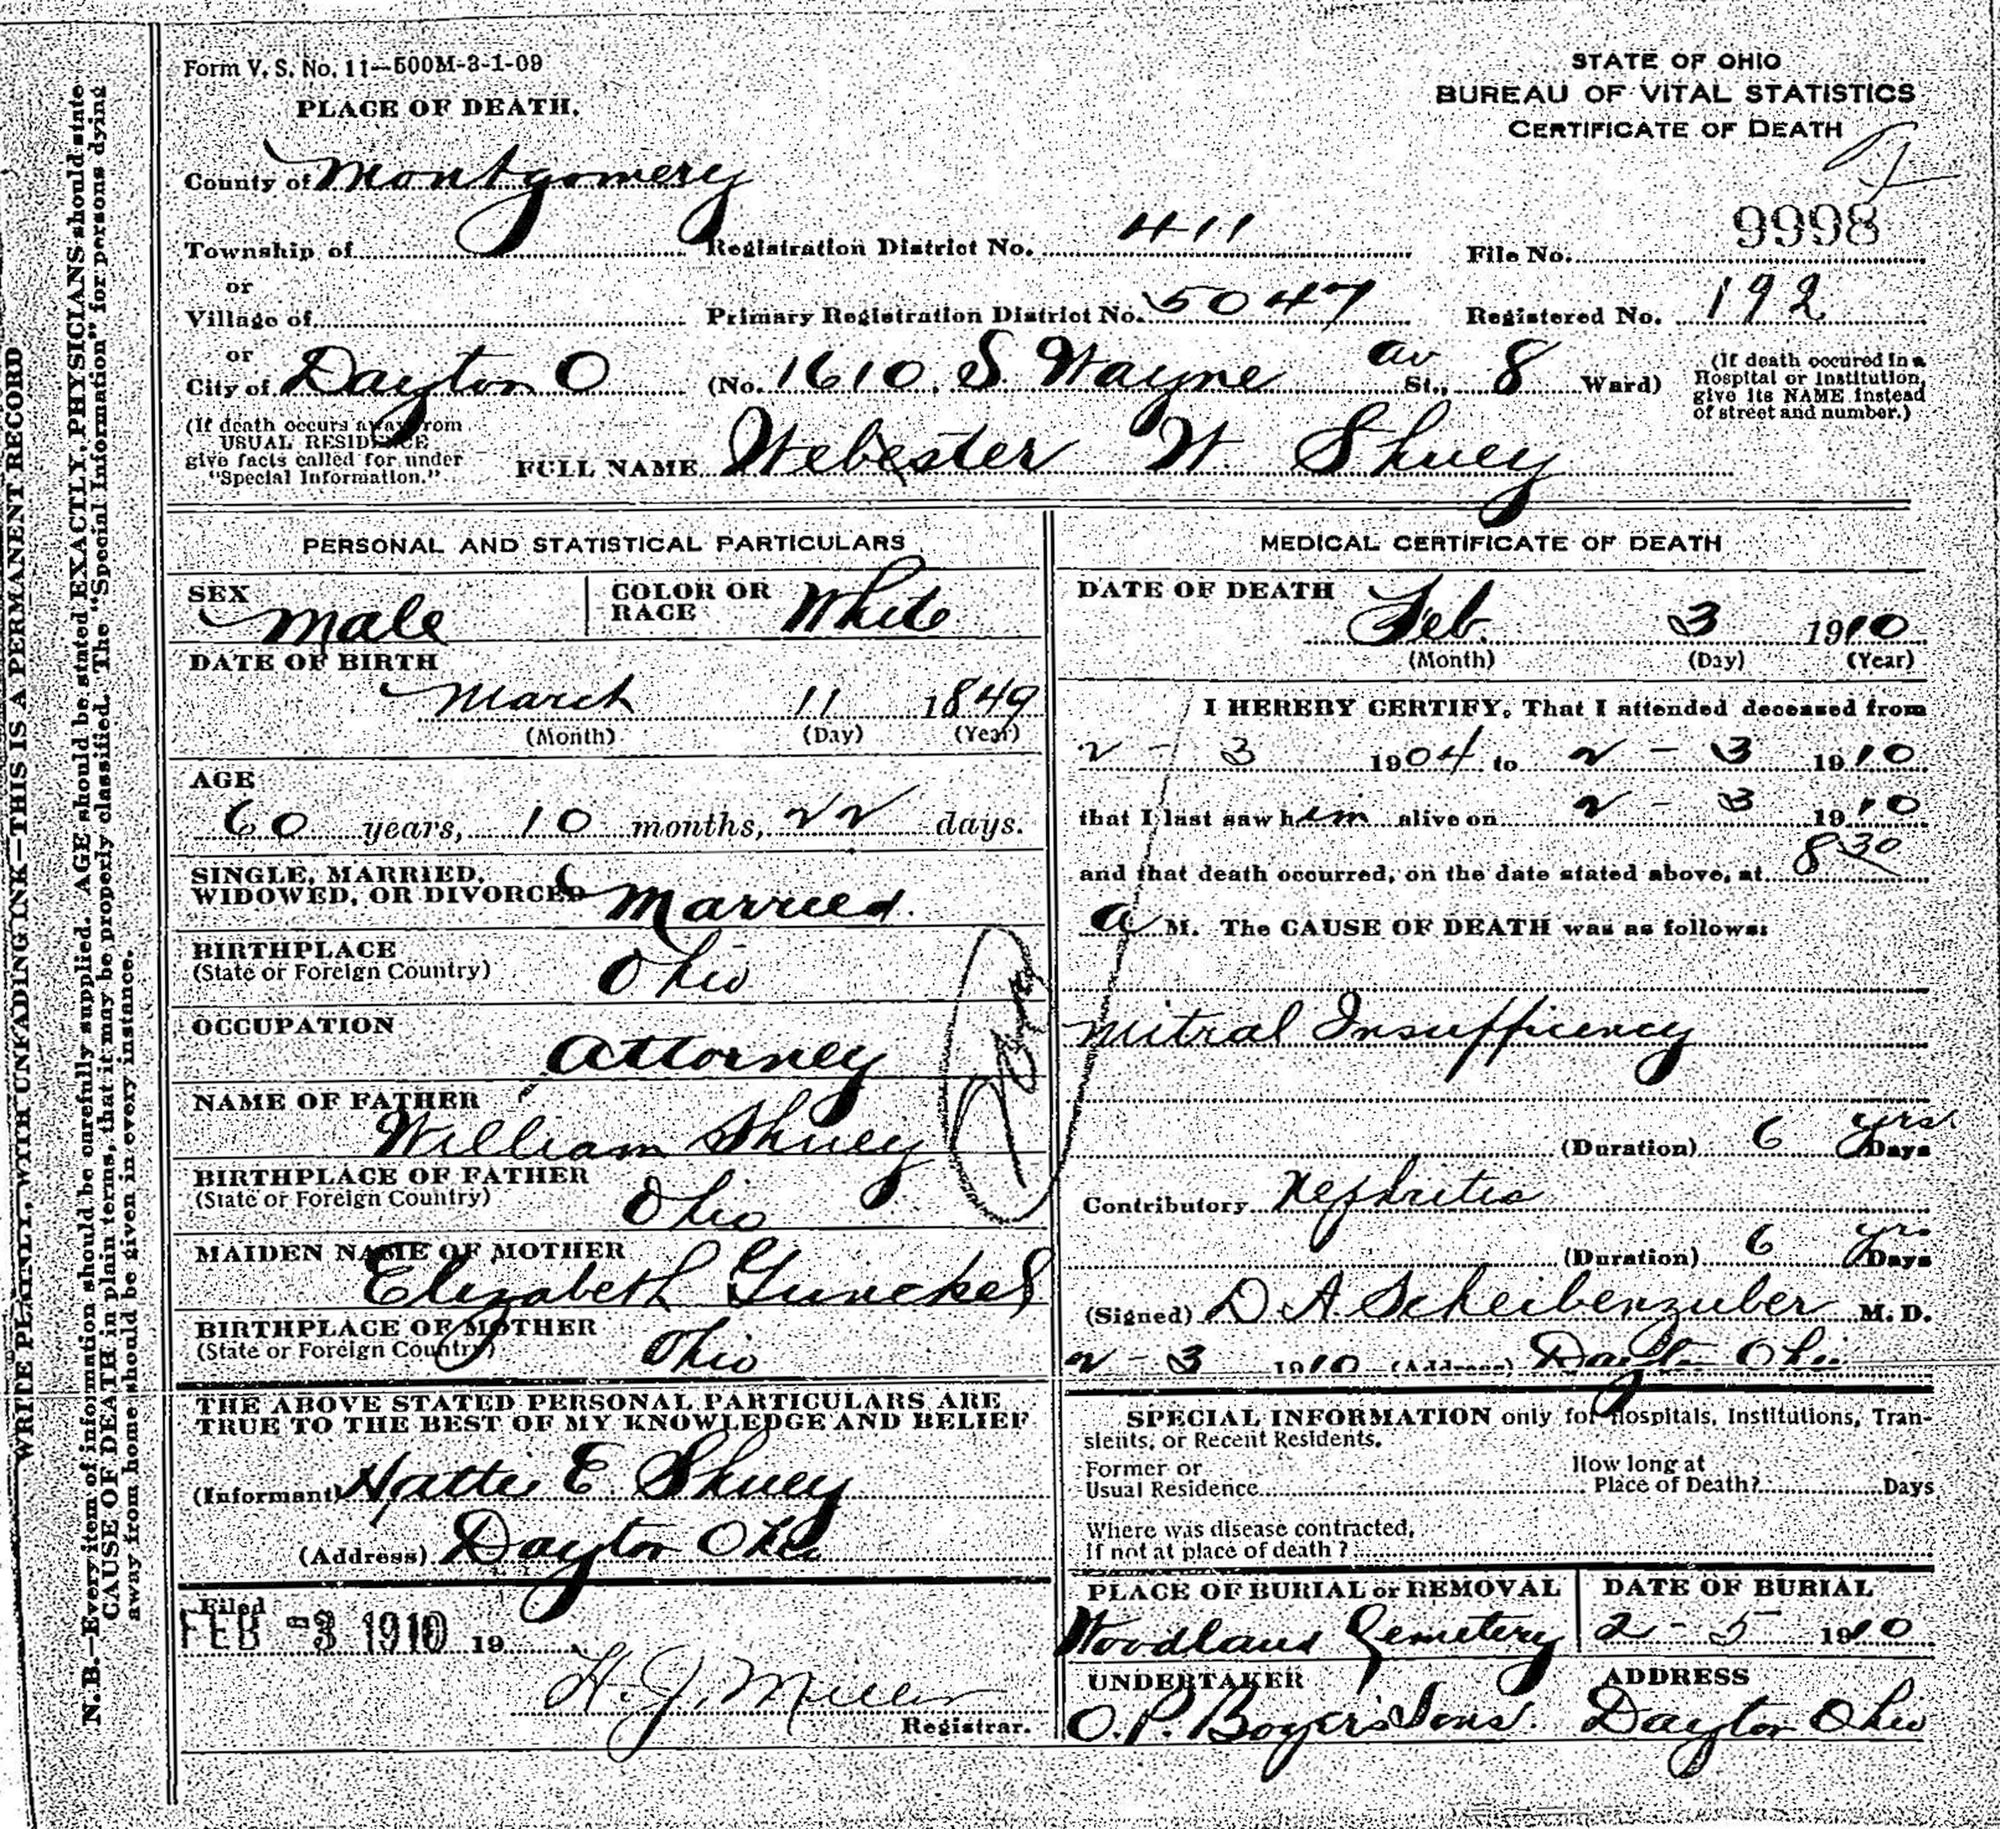 Form V. S. No. 11—500M-3-1-09
STATE OF OHIO
BUREAU OF VITAL STATISTICS
CERTIFICATE OF DEATH
PLACE OF DEATH.
County of Montgomery
Township of Registration District No. 411 File No. 9998
or
Village of Primary Registration District No. 5047 Registered No. 192
or
City of Dayton O (No. 1610, S. Wayne av St., 8 Ward)
(If death occured in a
Hospital or Institution,
give its NAME instead
of street and number.)
(If death occurs away from
USUAL RESIDENCE
give facts called for under
"Special Information."
FULL NAME Webester W. Shuey
PERSONAL AND STATISTICAL PARTICULARS
SEX Male COLOR OR RACE White
DATE OF BIRTH
March 11 1849
(Month) (Day) (Year)
AGE
60 years, 10 months, 22 days.
SINGLE, MARRIED,
WIDOWED, OR DIVORCED Married.
BIRTHPLACE
(State or Foreign Country) Ohio
OCCUPATION
Attorney
NAME OF FATHER
William Shuey
BIRTHPLACE OF FATHER
(State or Foreign Country) Ohio
MAIDEN NAME OF MOTHER
Elizabeth Gunckel
BIRTHPLACE OF MOTHER
(State or Foreign Country) Ohio
THE ABOVE STATED PERSONAL PARTICULARS ARE
TRUE TO THE BEST OF MY KNOWLEDGE AND BELIEF
(Informant) Hattie E. Shuey
(Address) Dayton Ohio
Filed
FEB -3 1910 19
H. J. Miller
Registrar.
MEDICAL CERTIFICATE OF DEATH
DATE OF DEATH
Feb. 3 1910
(Month) (Day) (Year)
I HEREBY CERTIFY, That I attended deceased from
2 - 3 1904 to 2 - 3 1910
that I last saw him alive on 2 - 3 1910
and that death occurred, on the date stated above, at 8 30
a M. The CAUSE OF DEATH was as follows:
Mitral Insufficency
(Duration) 6 yrs. Days
Contributory Nephritis
(Duration) 6 yrs Days
(Signed) D. A. Scheibenzuber M. D.
2 - 3 1910 (Address) Dayton Ohio
SPECIAL INFORMATION only for Hospitals, Institutions, Tran-
sients, or Recent Residents.
Former or
Usual Residence
How long at
Place of Death? Days
Where was disease contracted,
If not at place of death?
PLACE OF BURIAL or REMOVAL DATE OF BURIAL
Woodland Cemetery 2 - 5 1910
UNDERTAKER ADDRESS
O. P. Boyer Sons. Dayton Ohio
WRITE PLAINLY, WITH UNFADING INK—THIS IS A PERMANENT RECORD
N. B.—Every item of information should be carefully supplied. AGE should be stated EXACTLY. PHYSICIANS should state
CAUSE OF DEATH in plain terms, that it may be properly classified. The "Special Information" for persons dying
away from home should be given in every instance.